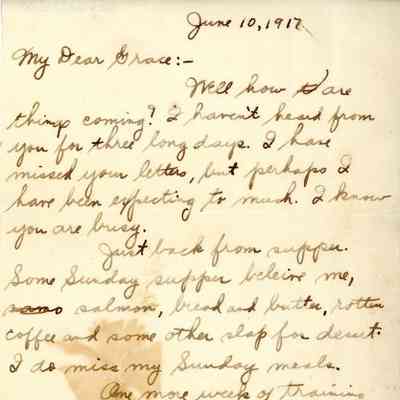 June 10, 1917
My Dear Grace:-
Well how are
things coming? I haven't heard from
you for three long days. I have
missed your letters, but perhaps I
have been expecting to much. I know
you are busy.
Just back from supper.
Some Sunday supper beleive me,
salmon, bread and butter, rotten
coffee and some other slop for desert.
I do miss my Sunday meals.
One more week of training